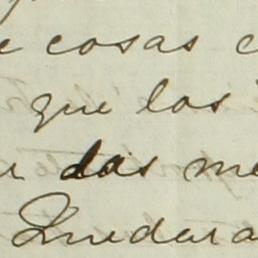 e cosas c
que los
u dos me
Quedara